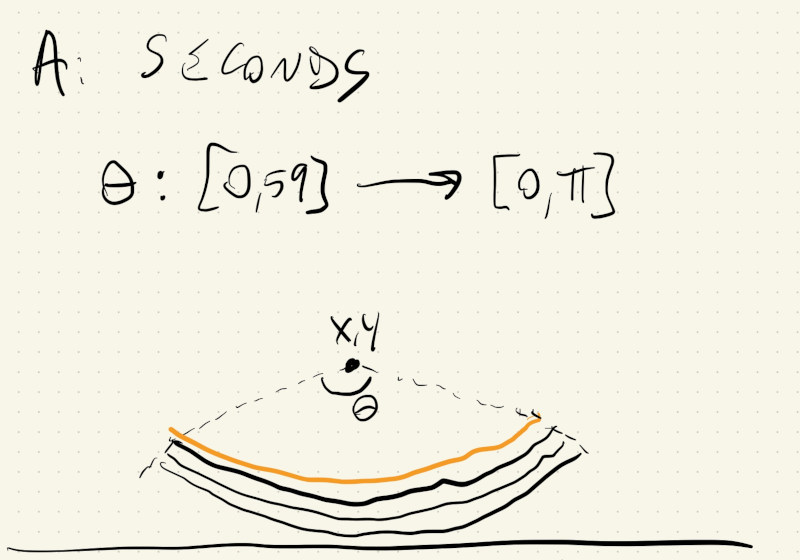 A: SECONDS
θ: [0,59] → [0,π]
x,y
θ